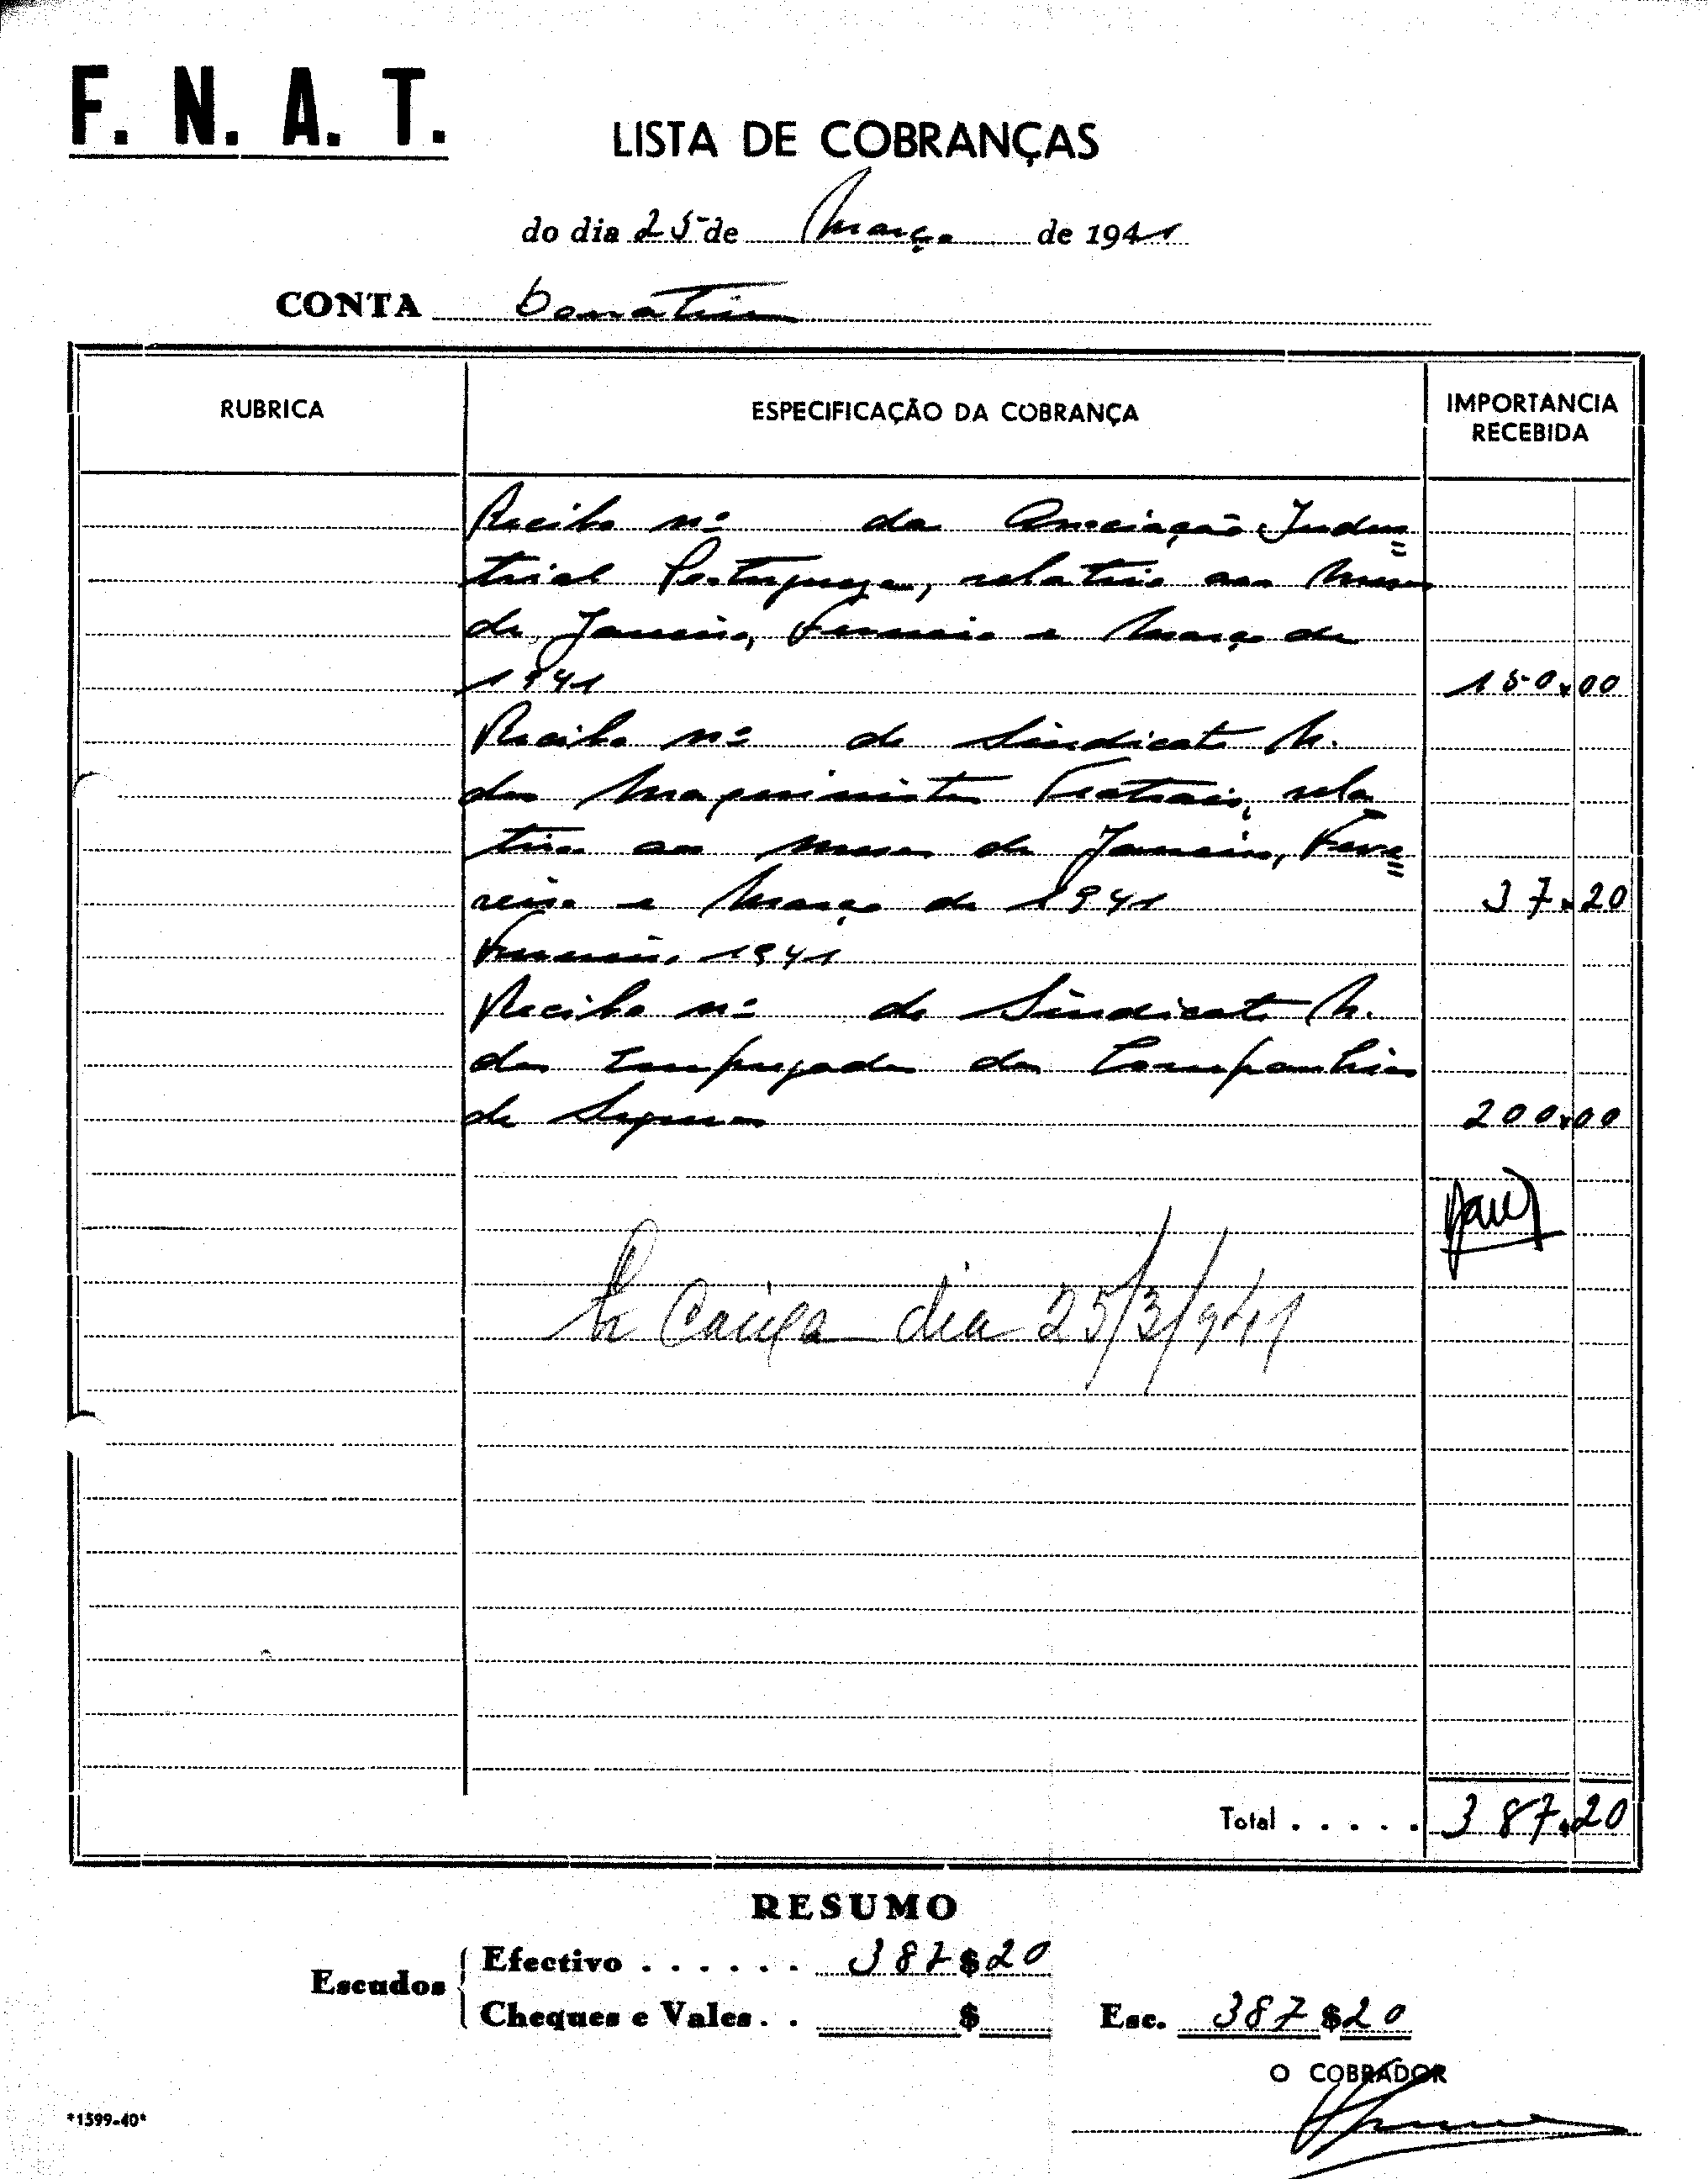 F. N. A. T.
LISTA DE COBRANÇAS
do dia 25 de Março de 1941
CONTA Donativos
RUBRICA ESPECIFICAÇÃO DA COBRANÇA IMPORTANCIA RECEBIDA
Recibo nº da Associação Indus=
trial Portugueza, relativo aos meses
de Janeiro, Fevereiro e Março de
1941 150$00
Recibo nº do Sindicato N.
dos Maquinistas Teatrais, rela
tivo aos meses de Janeiro, Feve=
reiro e Março de 1941 37$20
Fevereiro 1941
Recibo nº do Sindicato N.
dos Empregados das Companhias
de Seguros 200$00
Caixa dia 25/3/941
Total . . . . . 387$20
RESUMO
Escudos
Efectivo . . . . . . 387$20
Cheques e Vales . . $
Esc. 387$20
O COBRADOR
*1599-40*